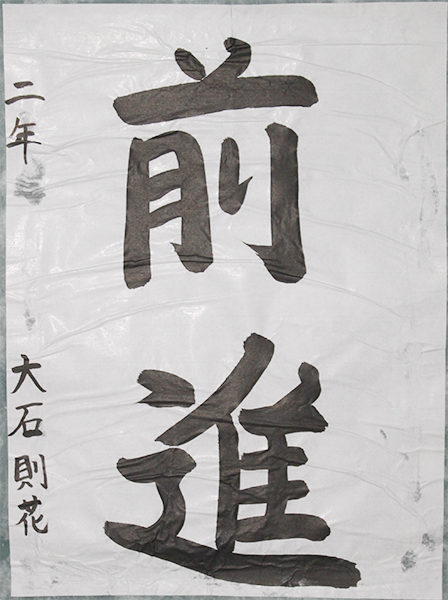 前進
二年
大石則花